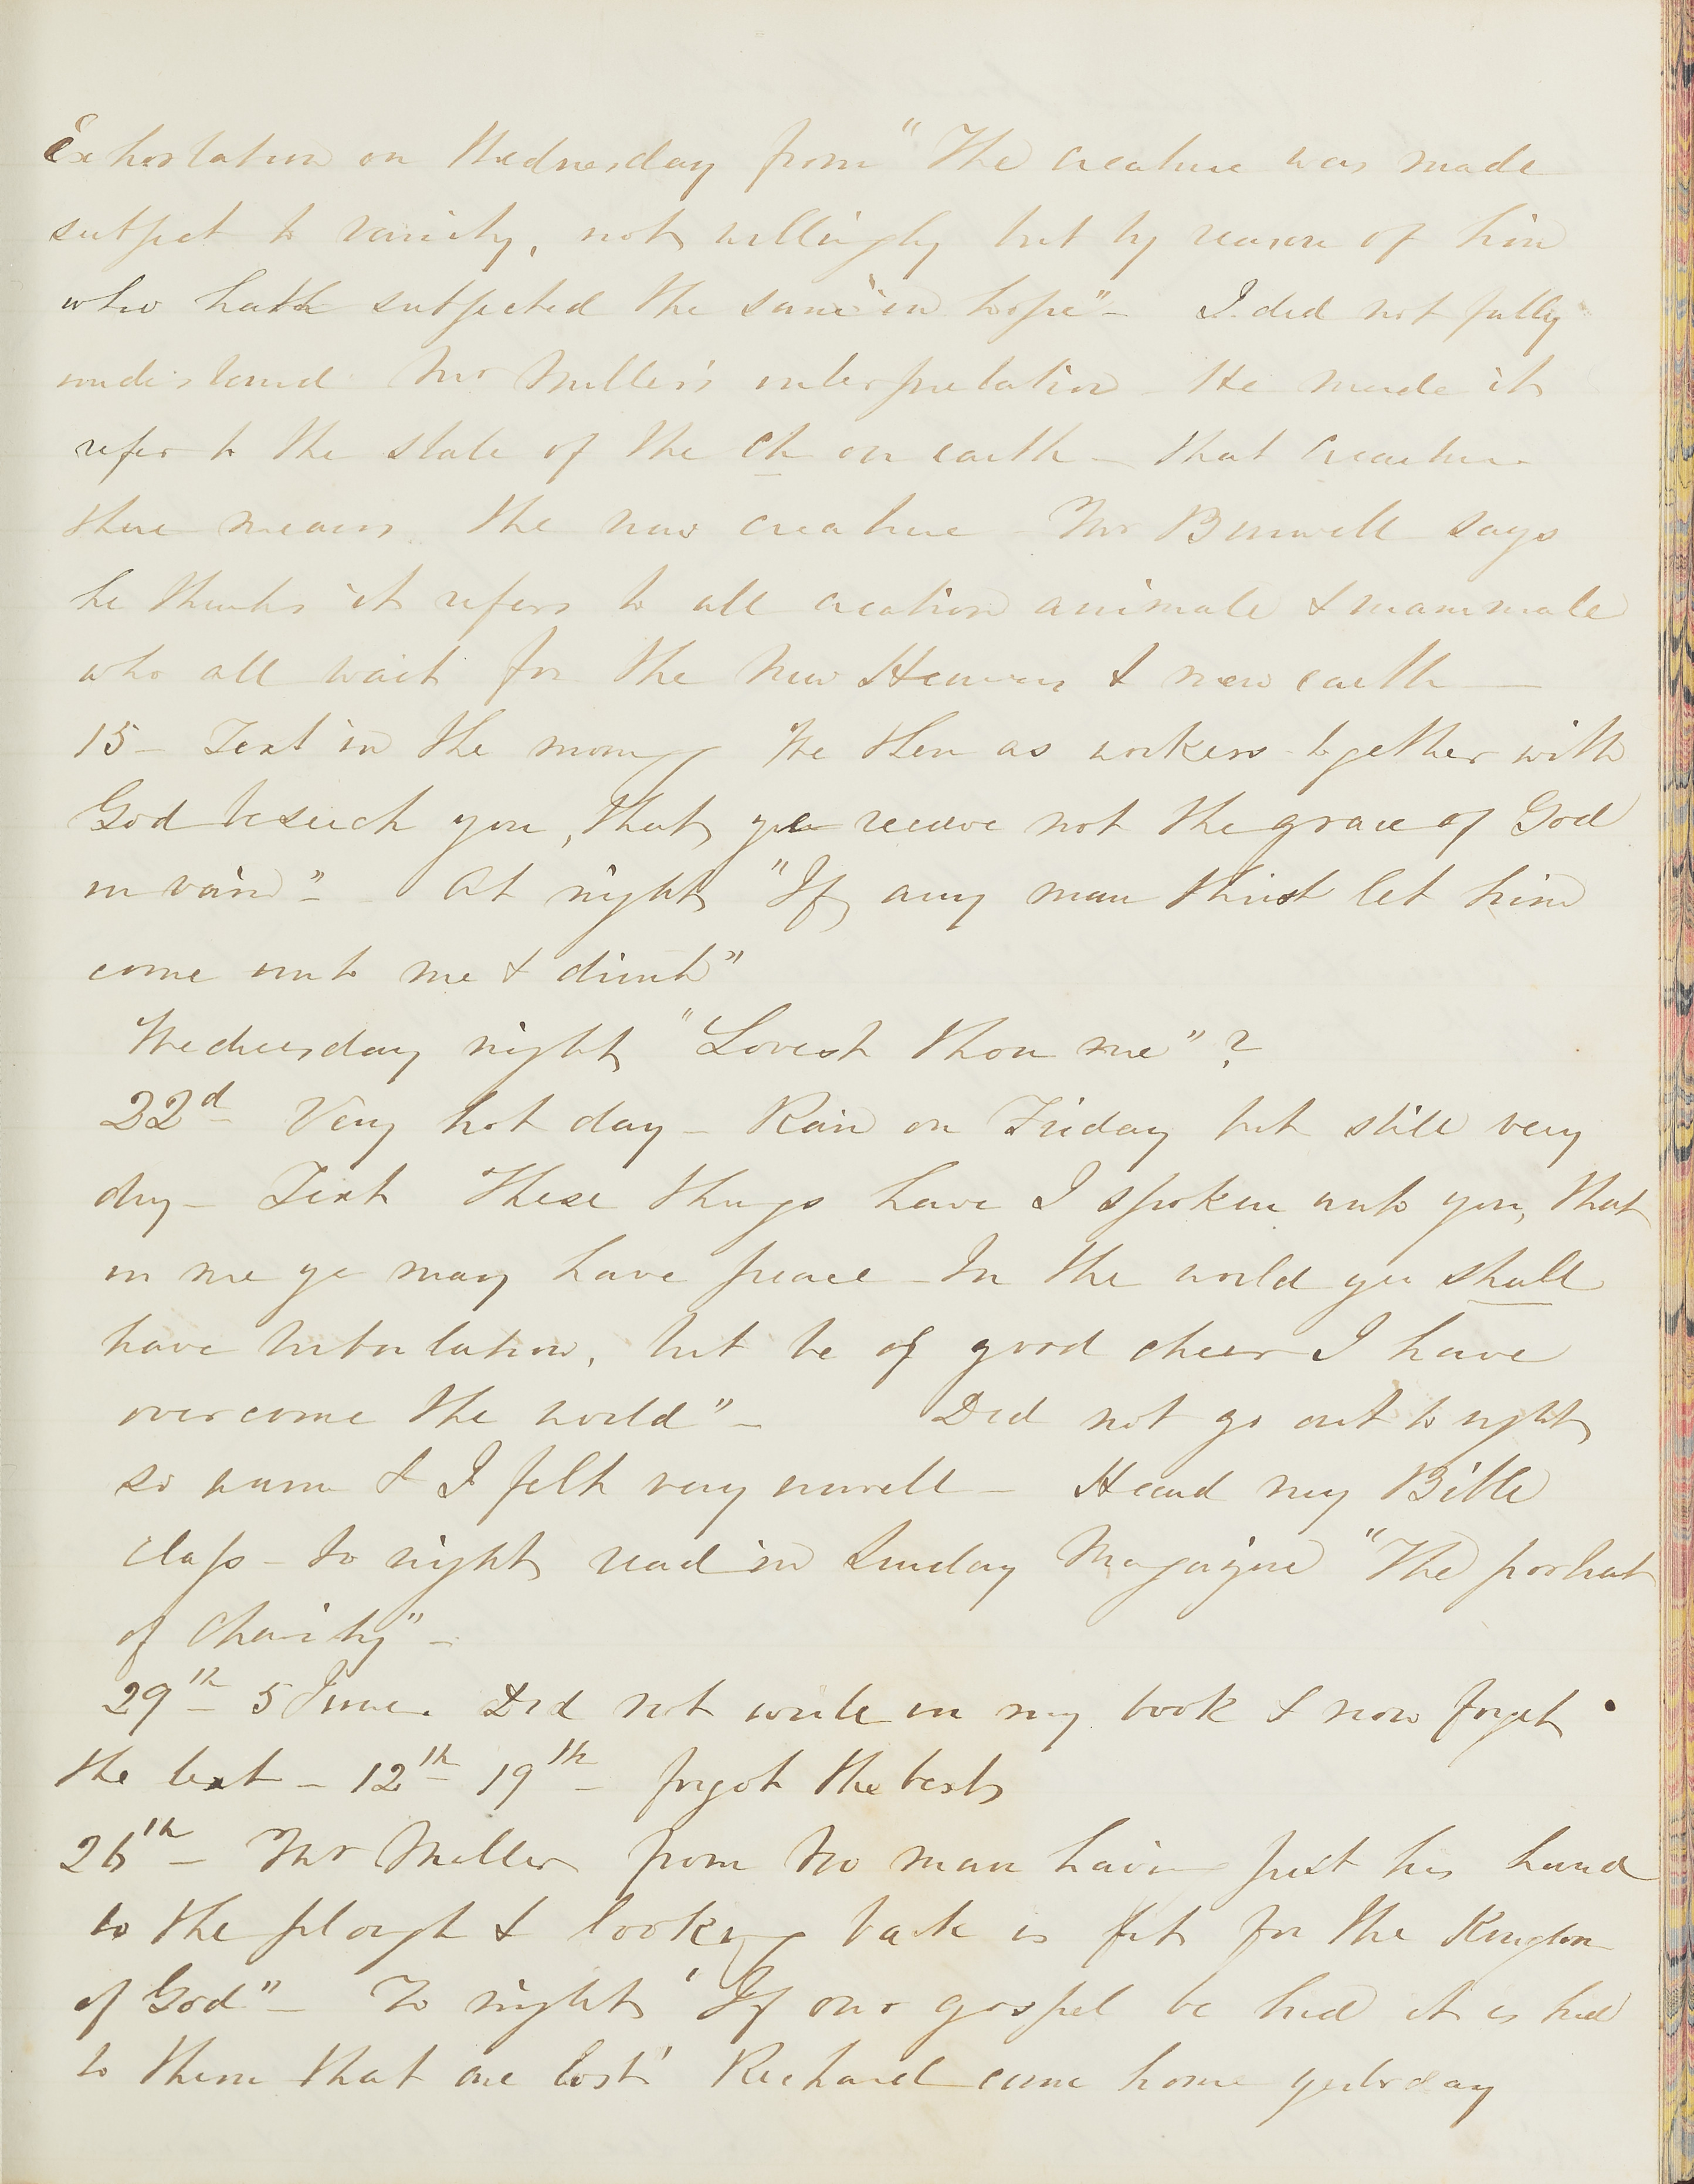 Exhortation on Wednesday from "The creature was made
subject to vanity, not willingly but by reason of him
who hath subjected the same in hope" – I did not fully
understand Mr Miller's interpretation – He made it
refer to the state of the ch on earth – that creature
there means the new creature – Mr Burwell says
he thinks it refers to all creation animate & inanimate
who all wait for the New Heavens & new earth —
15 – Text in the morng We then as workers together with
God beseech you, that ye receive not the grace of God
in vain" – At night "If any man thirst let him
come unto me & drink"
Wednesday night "Lovest thou me"?
22d Very hot day – Rain on Friday but still very
dry – Text These things have I spoken unto you, that
in me ye may have peace – In the world ye shall
have tribulation, but be of good cheer I have
overcome the world" – Did not go out to night
so warm & I felt very unwell – Heard my Bible
class – to night read in Sunday Magazine "The portrait
of Charity" –
29th – 5 June. Did not write in my book & now forget
the text – 12th 19th – forgot the texts
26th – Mr Miller from No man having put his hand
to the plough & looking back is fit for the Kingdom
of God" – To night 'If our gospel be hid it is hid
to them that are lost' Richard came home yesterday